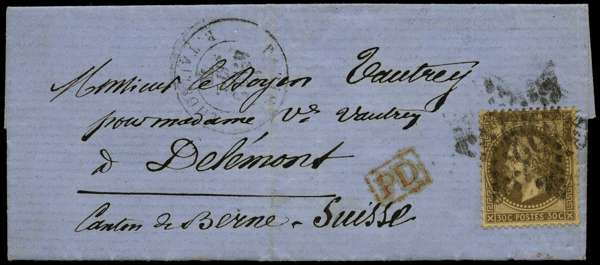 Monsieur le Doyen Vautrey
pour madame Ve Vautrey
à Delémont
Canton de Berne - Suisse
PD
30C POSTES 30C